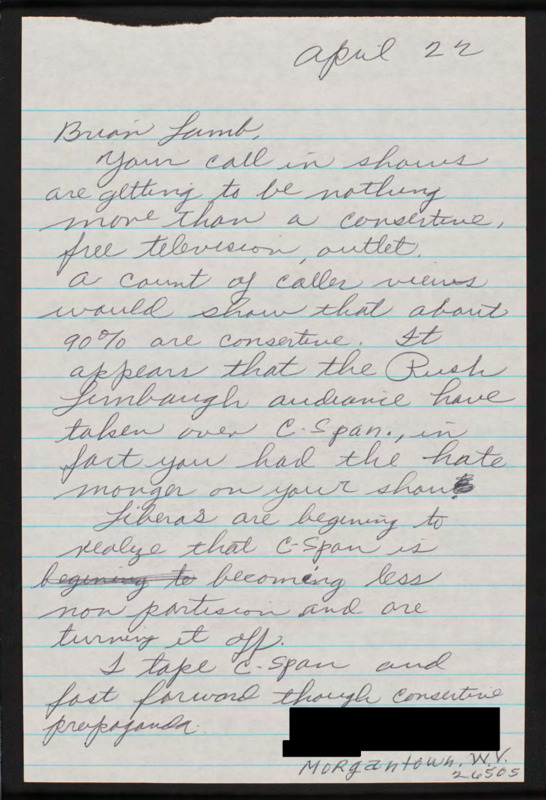 April 22
Brian Lamb,
Your call in shows
are getting to be nothing
more than a consertive,
free television, outlet.
A count of caller views
would show that about
90% are consertive. It
appears that the Rush
Limbaugh audiance have
taken over C-Span., in
fact you had the hate
monger on your show
Liberas are begining to
realize that C-Span is
begining to becoming less
non partision and are
turning it off.
I tape C-Span and
fast forward though consertive
propaganda.
Morgantown, W.V.
26505